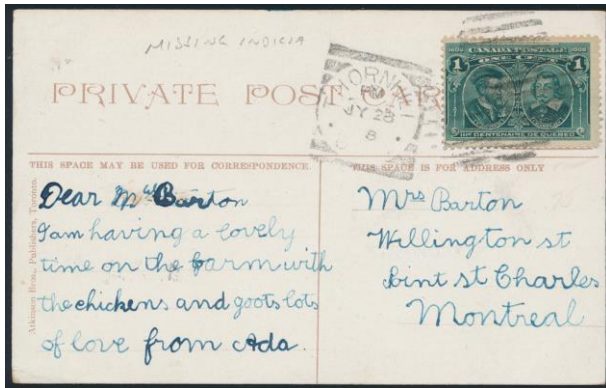 MISSING INDICIA
PRIVATE POST CARD
1608 CANADA POSTAGE 1908
ONE CENT
1 1
IIIe CENTENAIRE DE QUEBEC
PM
JY 28
8
THIS SPACE MAY BE USED FOR CORRESPONDENCE.
THIS SPACE IS FOR ADDRESS ONLY
Atkinson Bros., Publishers, Toronto.
Dear Mrs Barton
I am having a lovely
time on the farm with
the chickens and goots lots
of love from Ada.
Mrs Barton
Willington st
Point st Charles
Montreal